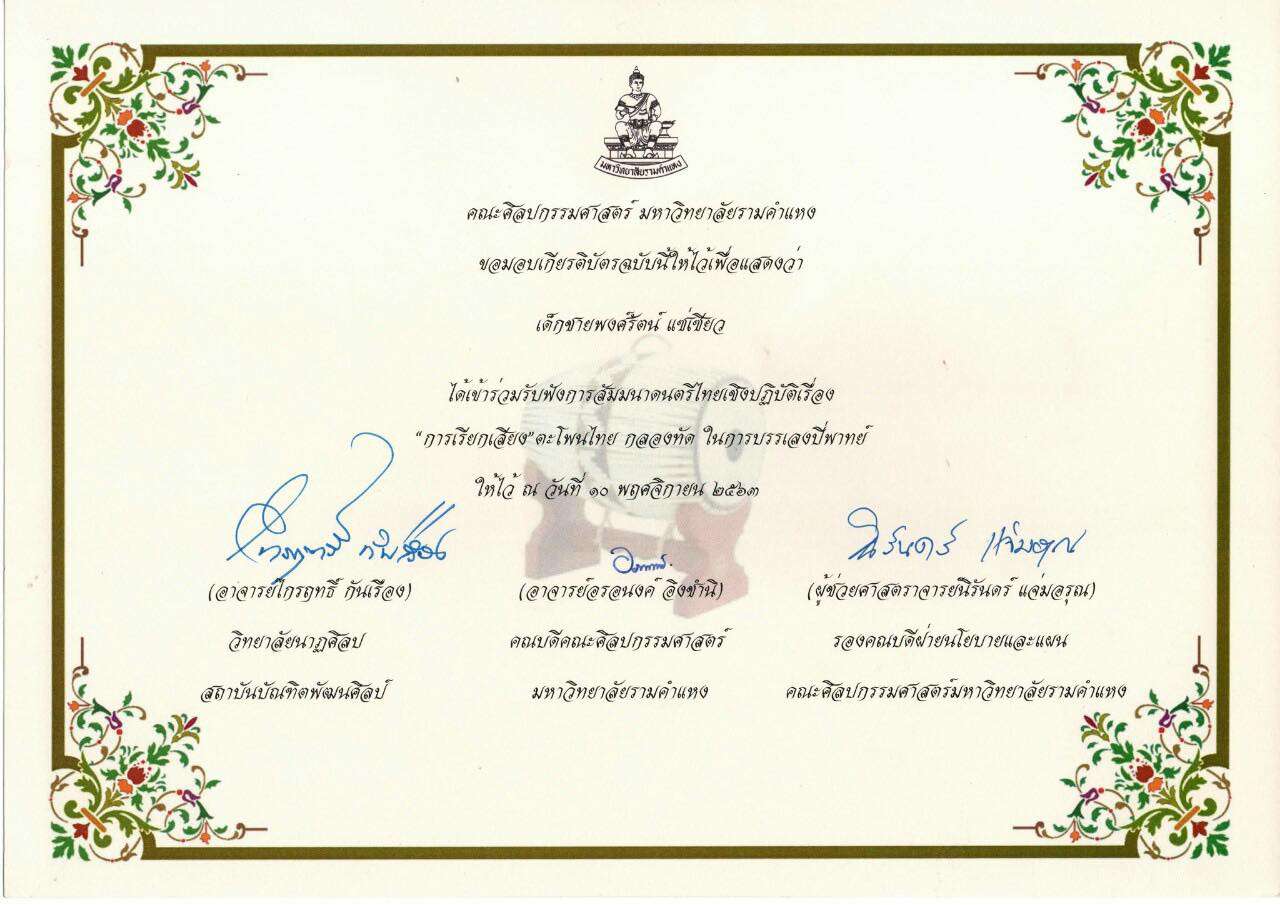 มหาวิทยาลัยรามคำแหง
คณะศิลปกรรมศาสตร์ มหาวิทยาลัยรามคำแหง
ขอมอบเกียรติบัตรฉบับนี้ให้ไว้เพื่อแสดงว่า
เด็กชายพงศ์รัตน์ แซ่เซียว
ได้เข้าร่วมรับฟังการสัมมนาดนตรีไทยเชิงปฏิบัติเรื่อง
"การเรียกเสียง"ตะโพนไทย กลองทัด ในการบรรเลงปี่พาทย์
ให้ไว้ ณ วันที่ ๑๐ พฤศจิกายน ๒๕๖๓
นิรันดร์ แจ่มอรุณ
(อาจารย์ไกรฤทธิ์ กันเรือง) (อาจารย์อรอนงค์ อิงชำนิ) (ผู้ช่วยศาสตราจารย์นิรันดร์ แจ่มอรุณ)
วิทยาลัยนาฏศิลป คณบดีคณะศิลปกรรมศาสตร์ รองคณบดีฝ่ายนโยบายและแผน
สถาบันบัณฑิตพัฒนศิลป์ มหาวิทยาลัยรามคำแหง คณะศิลปกรรมศาสตร์มหาวิทยาลัยรามคำแหง